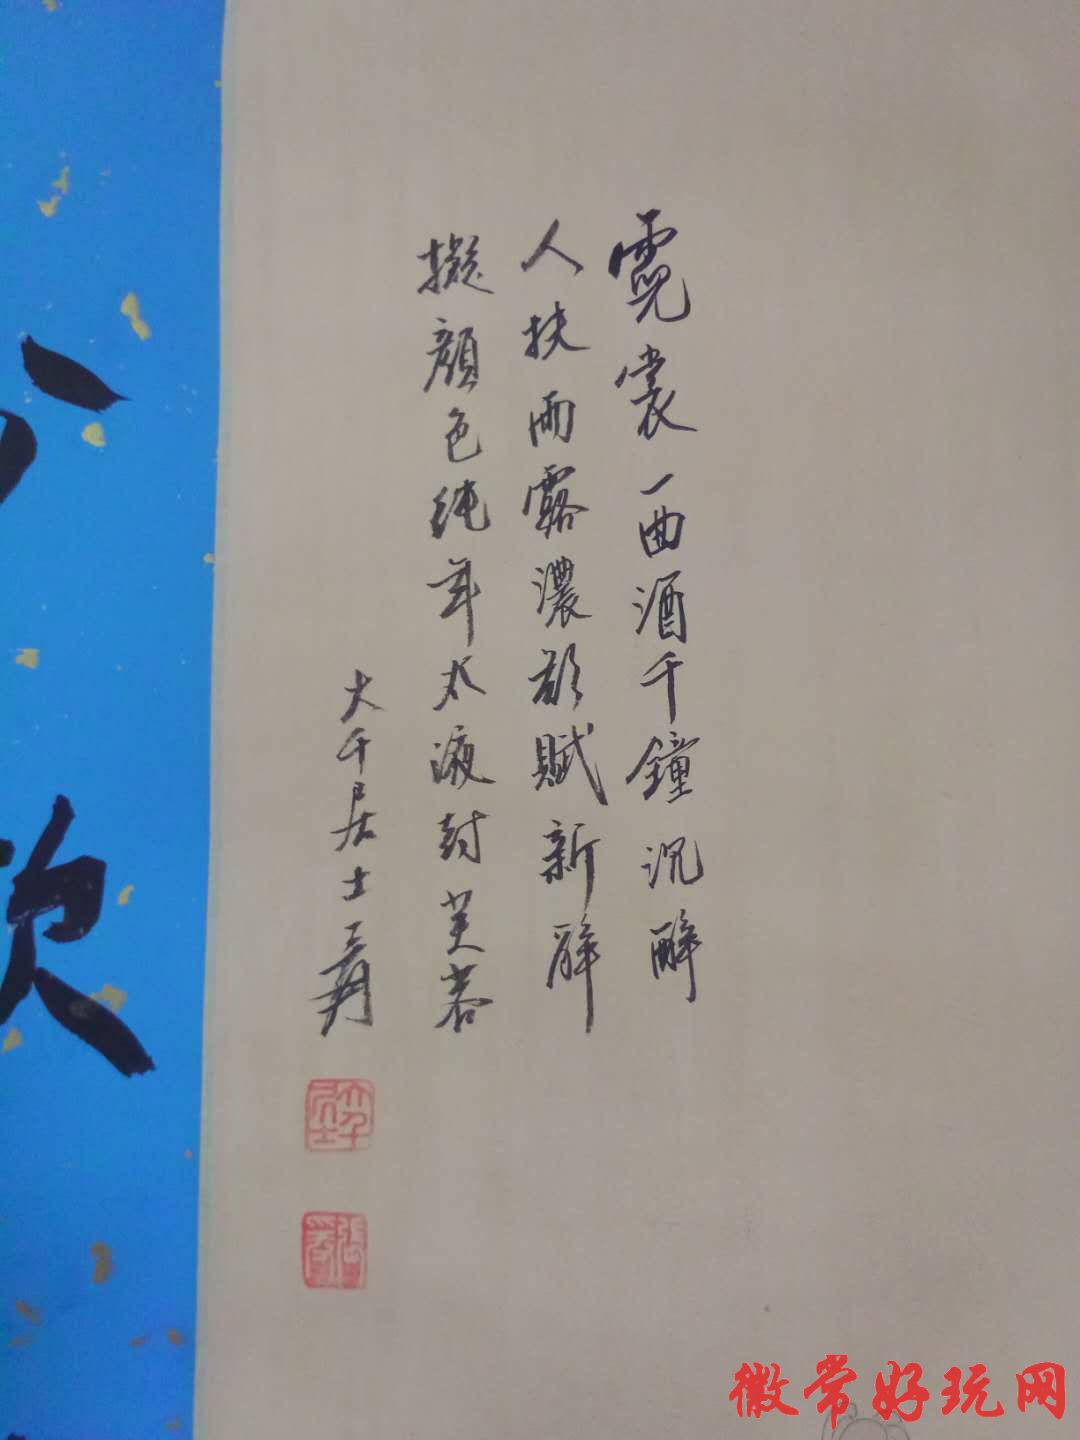 霓裳一曲酒千鐘沉醉
人扶雨露濃欲賦新辭
擬顏色純年太液封芙蓉
大千居士爰
徽常好玩网